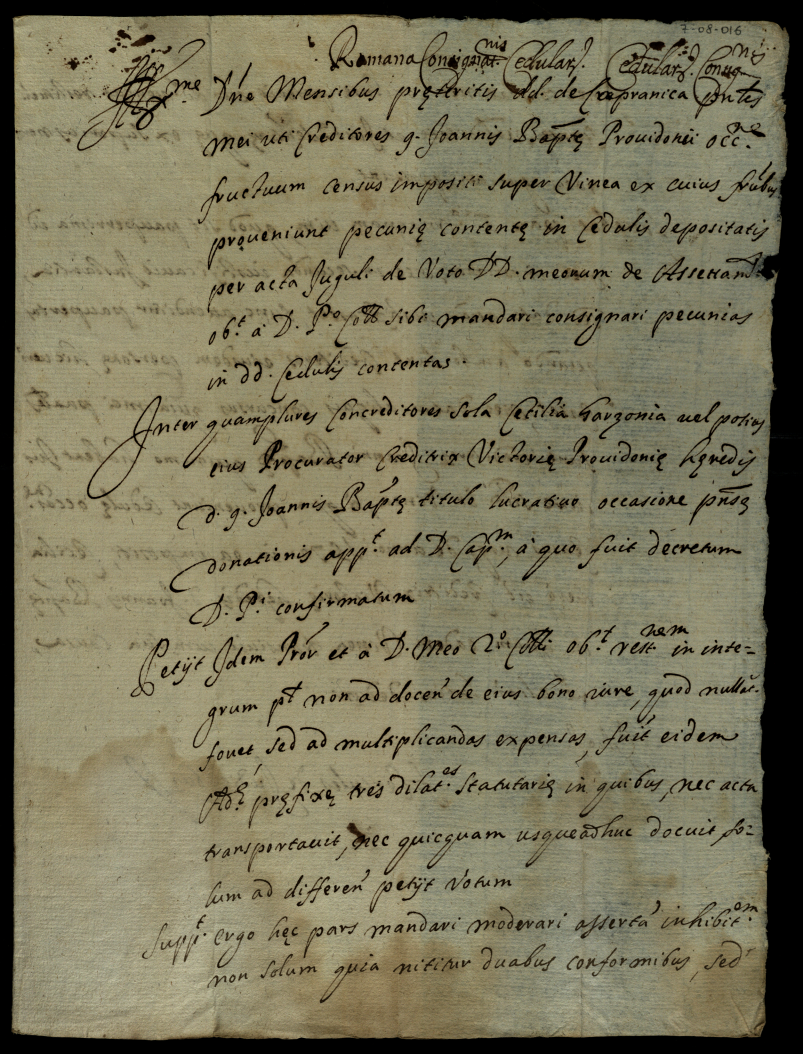 7-08-016
Romana Consignat.nis Cedular. Cedular. Consig.nis
Ill.me Dne Mensibus pręteritis dd. de Capranica pntes
mei uti Creditores q. Joannis Baptę Prouidonii occ.ne
fructuum census impositi super Vinea ex cuius frūbus
proueniunt pecunię contentę in Cedulis depositatis
per acta Juguli de Voto DD. meorum de Assetam.
ob.t à D. P.o Coll. sibi mandari consignari pecunias
in dd. Cedulis contentas.
Inter quamplures Concreditores sola Cecilia Garzonia uel potius
eius Procurator Creditrix Victorię Prouidonię hęredis
d. q. Joannis Baptę titulo lucratiuo occasione pnsę
donationis app.t ad D. Cap.m, à quo fuit decretum
D. P.i confirmatum
Petijt Idem Pror et à D. Meo 2.o Coll. ob.t rest.nem in inte-
grum pt non ad docen de eius bono iure, quod nullat.
fouet, sed ad multiplicandas expensas, fuit eidem
Ad. pręfixę tres dilat.es statutarię in quibus, nec acta
transportauit, nec quicquam usqueadhuc docuit, so-
lum ad differen petijt Votum
Supp.t ergo hęc pars mandari moderari asserta inhibit.em
non solum quia nititur duabus conformibus, sed